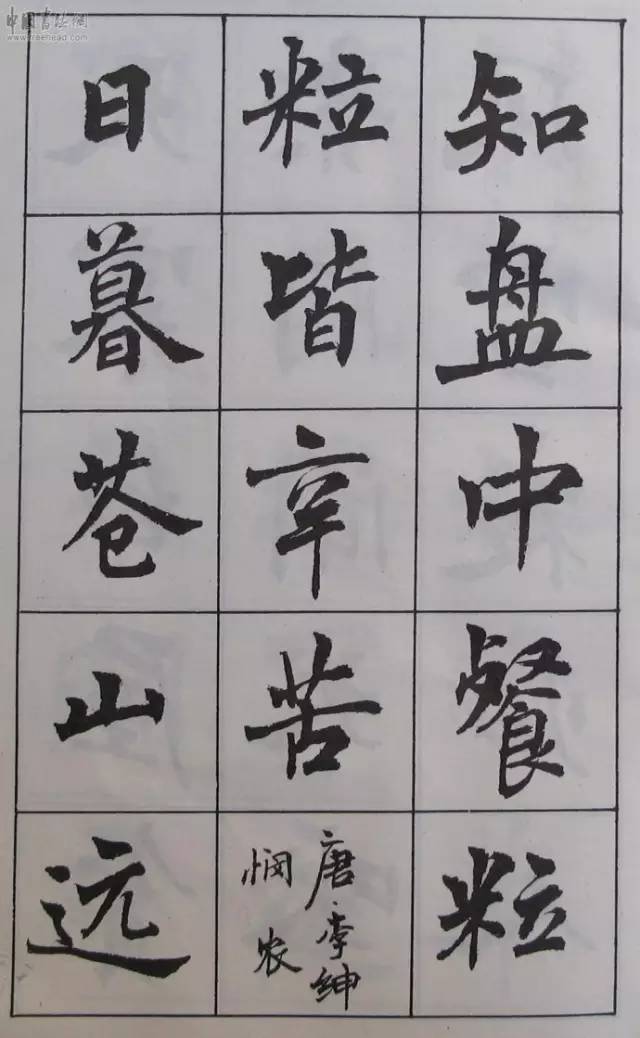 知盘中餐粒
粒皆辛苦
唐·李绅
悯农
日暮苍山远
中国书法网
www.freehead.com